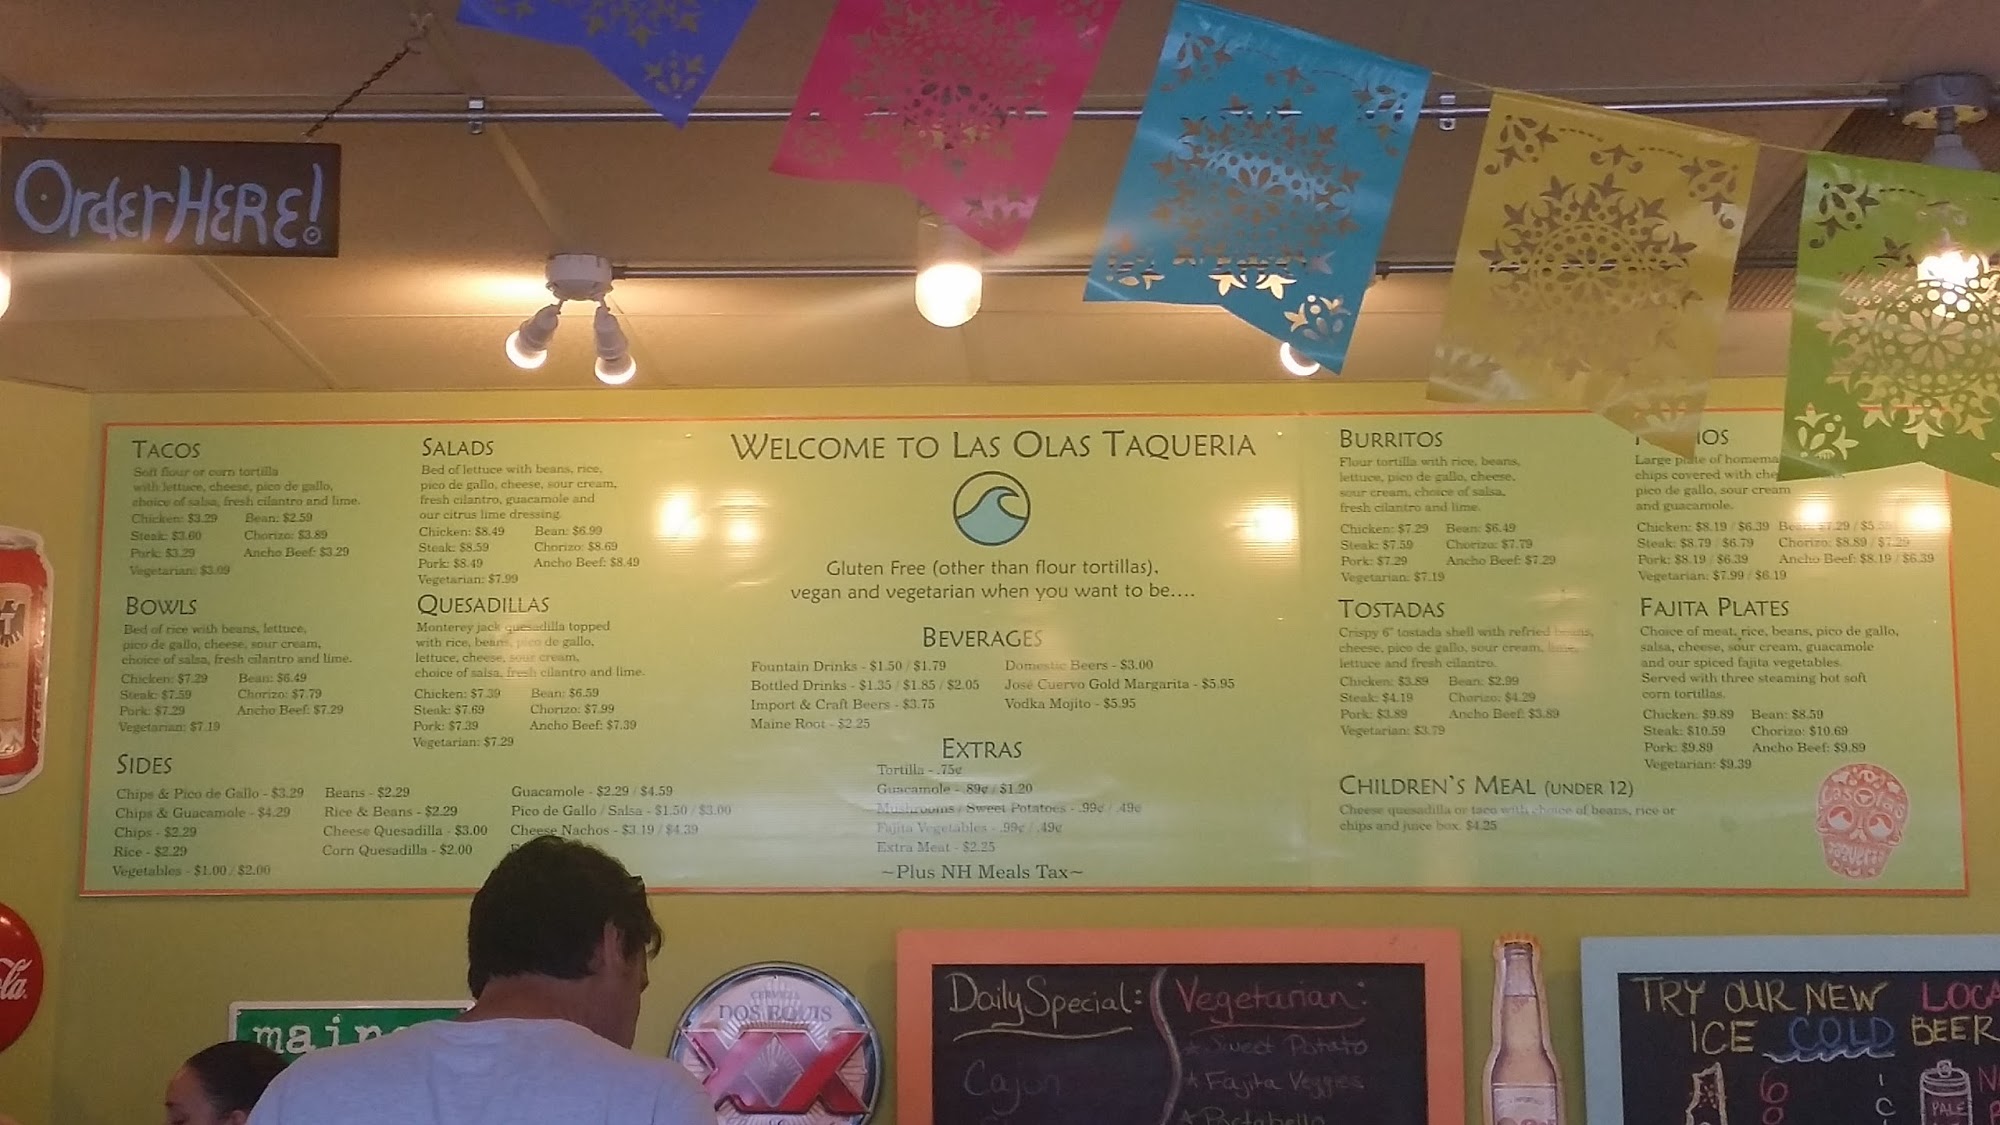 Order HERE!
TACOS
Soft flour or corn tortilla
with lettuce, cheese, pico de gallo,
choice of salsa, fresh cilantro and lime.
Chicken: $3.29 Bean: $2.59
Steak: $3.60 Chorizo: $3.89
Pork: $3.29 Ancho Beef: $3.29
Vegetarian: $3.09
BOWLS
Bed of rice with beans, lettuce,
pico de gallo, cheese, sour cream,
choice of salsa, fresh cilantro and lime.
Chicken: $7.29 Bean: $6.49
Steak: $7.59 Chorizo: $7.79
Pork: $7.29 Ancho Beef: $7.29
Vegetarian: $7.19
SALADS
Bed of lettuce with beans, rice,
pico de gallo, cheese, sour cream,
fresh cilantro, guacamole and
our citrus lime dressing.
Chicken: $8.49 Bean: $6.99
Steak: $8.59 Chorizo: $8.69
Pork: $8.49 Ancho Beef: $8.49
Vegetarian: $7.99
QUESADILLAS
Monterey jack quesadilla topped
with rice, beans, pico de gallo,
lettuce, cheese, sour cream,
choice of salsa, fresh cilantro and lime.
Chicken: $7.39 Bean: $6.59
Steak: $7.69 Chorizo: $7.99
Pork: $7.39 Ancho Beef: $7.39
Vegetarian: $7.29
SIDES
Chips & Pico de Gallo - $3.29
Chips & Guacamole - $4.29
Chips - $2.29
Rice - $2.29
Vegetables - $1.00 / $2.00
Beans - $2.29
Rice & Beans - $2.29
Cheese Quesadilla - $3.00
Corn Quesadilla - $2.00
Guacamole - $2.29 / $4.59
Pico de Gallo / Salsa - $1.50 / $3.00
Cheese Nachos - $3.19 / $4.39
WELCOME TO LAS OLAS TAQUERIA
Gluten Free (other than flour tortillas),
vegan and vegetarian when you want to be....
BEVERAGES
Fountain Drinks - $1.50 / $1.79
Bottled Drinks - $1.35 / $1.85 / $2.05
Import & Craft Beers - $3.75
Maine Root - $2.25
Domestic Beers - $3.00
José Cuervo Gold Margarita - $5.95
Vodka Mojito - $5.95
EXTRAS
Tortilla - .75¢
Guacamole - .89¢ / $1.20
Mushrooms / Sweet Potatoes - .99¢ / .49¢
Fajita Vegetables - .99¢ / .49¢
Extra Meat - $2.25
~Plus NH Meals Tax~
BURRITOS
Flour tortilla with rice, beans,
lettuce, pico de gallo, cheese,
sour cream, choice of salsa,
fresh cilantro and lime.
Chicken: $7.29 Bean: $6.49
Steak: $7.59 Chorizo: $7.79
Pork: $7.29 Ancho Beef: $7.29
Vegetarian: $7.19
TOSTADAS
Crispy 6" tostada shell with refried beans,
cheese, pico de gallo, sour cream, lime,
lettuce and fresh cilantro.
Chicken: $3.89 Bean: $2.99
Steak: $4.19 Chorizo: $4.29
Pork: $3.89 Ancho Beef: $3.89
Vegetarian: $3.79
CHILDREN'S MEAL (UNDER 12)
Cheese quesadilla or taco with choice of beans, rice or
chips and juice box. $4.25
Large plate of
chips covered with
pico de gallo, sour cream
and guacamole.
Chicken: $8.19 / $6.39 Bean: $7.29 / $5.59
Steak: $8.79 / $6.79 Chorizo: $8.89 / $7.29
Pork: $8.19 / $6.39 Ancho Beef: $8.19 / $6.39
Vegetarian: $7.99 / $6.19
FAJITA PLATES
Choice of meat, rice, beans, pico de gallo,
salsa, cheese, sour cream, guacamole
and our spiced fajita vegetables.
Served with three steaming hot soft
corn tortillas.
Chicken: $9.89 Bean: $8.59
Steak: $10.59 Chorizo: $10.69
Pork: $9.89 Ancho Beef: $9.89
Vegetarian: $9.39
Las Olas
Taqueria
la.
main
CERVEZA
DOS EQUIS
XX
Daily Special:
Cajun
Vegetarian:
Sweet Potato
Fajita Veggies
Portabella
TRY OUR NEW LOCA
ICE COLD BEER
PALE